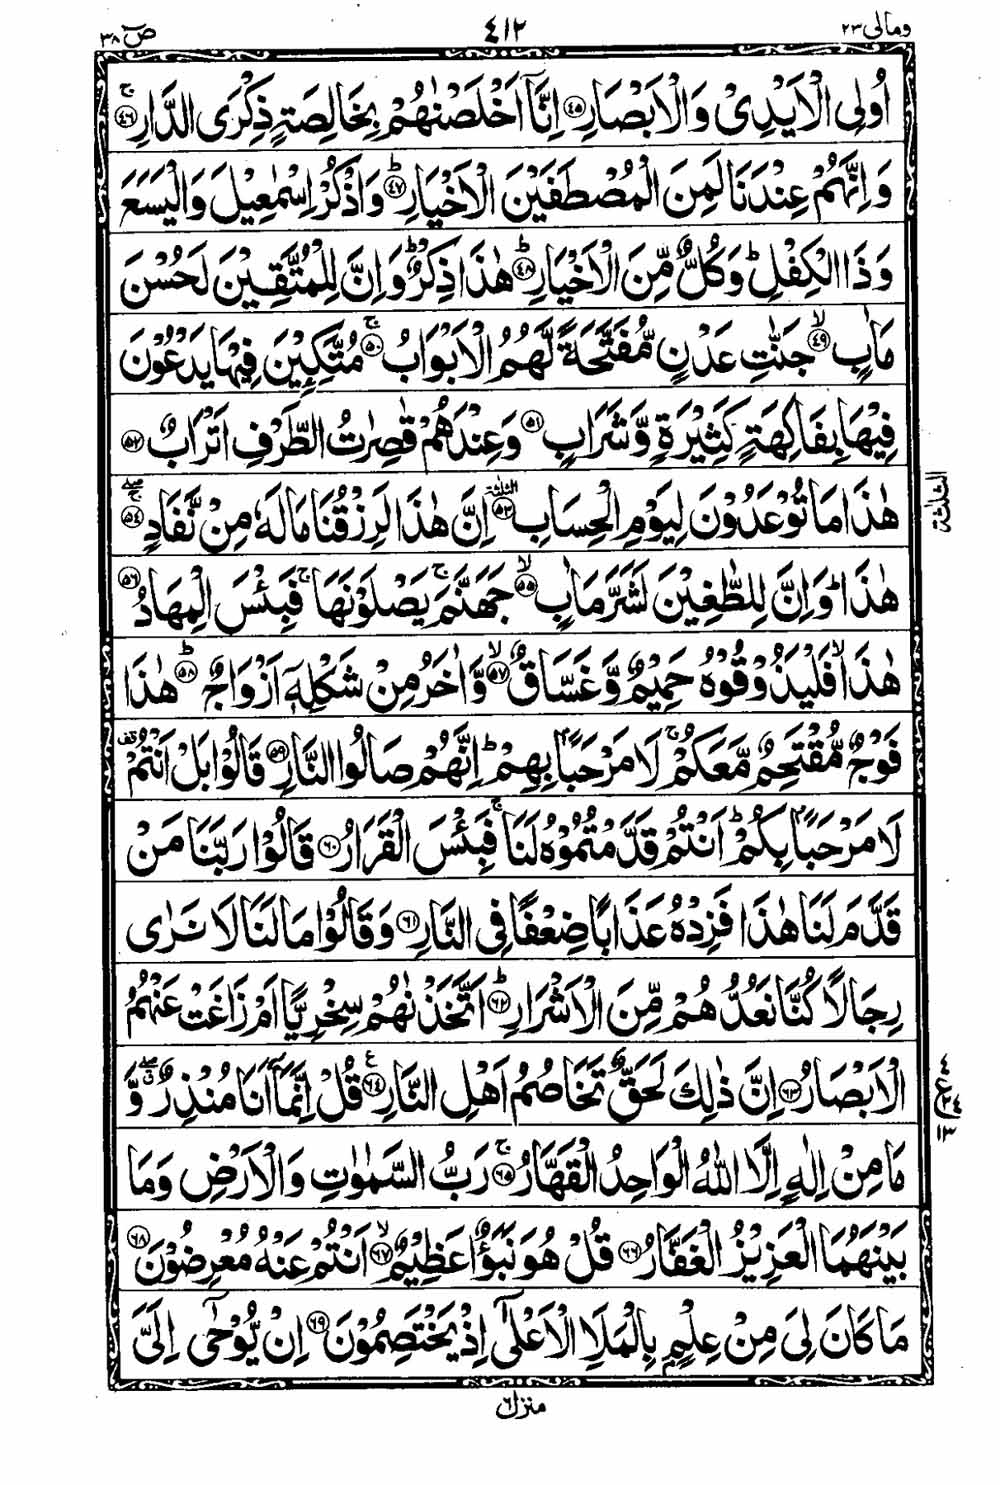 ومالی ٢٣ ٤١٢ صٓ ٣٨
اُولِی الْاَیْدِیْ وَالْاَبْصَارِ ﴿٤٥﴾ اِنَّاۤ اَخْلَصْنٰهُمْ بِخَالِصَةٍ ذِكْرَی الدَّارِ ۚ﴿٤٦﴾
وَاِنَّهُمْ عِنْدَنَا لَمِنَ الْمُصْطَفَیْنَ الْاَخْیَارِ ؕ﴿٤٧﴾ وَاذْكُرْ اِسْمٰعِیْلَ وَالْیَسَعَ
وَذَا الْكِفْلِ ؕ وَكُلٌّ مِّنَ الْاَخْیَارِ ؕ﴿٤٨﴾ هٰذَا ذِكْرٌ ؕ وَاِنَّ لِلْمُتَّقِیْنَ لَحُسْنَ
مَاٰبٍ ۙ﴿٤٩﴾ جَنّٰتِ عَدْنٍ مُّفَتَّحَةً لَّهُمُ الْاَبْوَابُ ۚ﴿٥٠﴾ مُتَّكِـِٕیْنَ فِیْهَا یَدْعُوْنَ
فِیْهَا بِفَاكِهَةٍ كَثِیْرَةٍ وَّشَرَابٍ ﴿٥١﴾ وَعِنْدَهُمْ قٰصِرٰتُ الطَّرْفِ اَتْرَابٌ ﴿٥٢﴾
هٰذَا مَا تُوْعَدُوْنَ لِیَوْمِ الْحِسَابِ ﴿٥٣﴾ الثلٰثة اِنَّ هٰذَا لَرِزْقُنَا مَا لَهٗ مِنْ نَّفَادٍ ۚۖ﴿٥٤﴾ الثلٰثة
هٰذَا ؕ وَاِنَّ لِلطّٰغِیْنَ لَشَرَّ مَاٰبٍ ۙ﴿٥٥﴾ جَهَنَّمَ ۚ یَصْلَوْنَهَا ۚ فَبِئْسَ الْمِهَادُ ﴿٥٦﴾
هٰذَا ۙ فَلْیَذُوْقُوْهُ حَمِیْمٌ وَّغَسَّاقٌ ۙ﴿٥٧﴾ وَّاٰخَرُ مِنْ شَكْلِهٖۤ اَزْوَاجٌ ؕ﴿٥٨﴾ هٰذَا
فَوْجٌ مُّقْتَحِمٌ مَّعَكُمْ ۚ لَا مَرْحَبًۢا بِهِمْ ؕ اِنَّهُمْ صَالُوا النَّارِ ﴿٥٩﴾ قَالُوْا بَلْ اَنْتُمْ قف
لَا مَرْحَبًۢا بِكُمْ ؕ اَنْتُمْ قَدَّمْتُمُوْهُ لَنَا ۚ فَبِئْسَ الْقَرَارُ ﴿٦٠﴾ قَالُوْا رَبَّنَا مَنْ
قَدَّمَ لَنَا هٰذَا فَزِدْهُ عَذَابًا ضِعْفًا فِی النَّارِ ﴿٦١﴾ وَقَالُوْا مَا لَنَا لَا نَرٰی
رِجَالًا كُنَّا نَعُدُّهُمْ مِّنَ الْاَشْرَارِ ؕ﴿٦٢﴾ اَتَّخَذْنٰهُمْ سِخْرِیًّا اَمْ زَاغَتْ عَنْهُمُ
الْاَبْصَارُ ﴿٦٣﴾ اِنَّ ذٰلِكَ لَحَقٌّ تَخَاصُمُ اَهْلِ النَّارِ ﴿٦٤﴾ ع قُلْ اِنَّمَاۤ اَنَا مُنْذِرٌ ۖۗ وَّ
مَا مِنْ اِلٰهٍ اِلَّا اللّٰهُ الْوَاحِدُ الْقَهَّارُ ۚ﴿٦٥﴾ رَبُّ السَّمٰوٰتِ وَالْاَرْضِ وَمَا
بَیْنَهُمَا الْعَزِیْزُ الْغَفَّارُ ﴿٦٦﴾ قُلْ هُوَ نَبَؤٌا عَظِیْمٌ ۙ﴿٦٧﴾ اَنْتُمْ عَنْهُ مُعْرِضُوْنَ ﴿٦٨﴾
مَا كَانَ لِیَ مِنْ عِلْمٍۭ بِالْمَلَاِ الْاَعْلٰۤی اِذْ یَخْتَصِمُوْنَ ﴿٦٩﴾ اِنْ یُّوْحٰۤی اِلَیَّ
منزل ٦